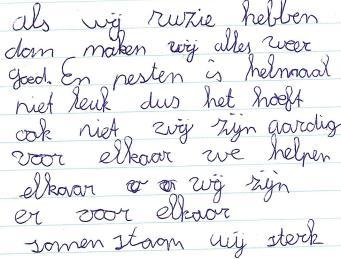 als wij ruzie hebben
dam maken wij alles weer
goed. En pesten is helmaal
niet leuk dus het hoeft
ook niet wij zijn aardig
voor elkaar we helpen
elkaar wij zijn
er voor elkaar
samen staan wij sterk